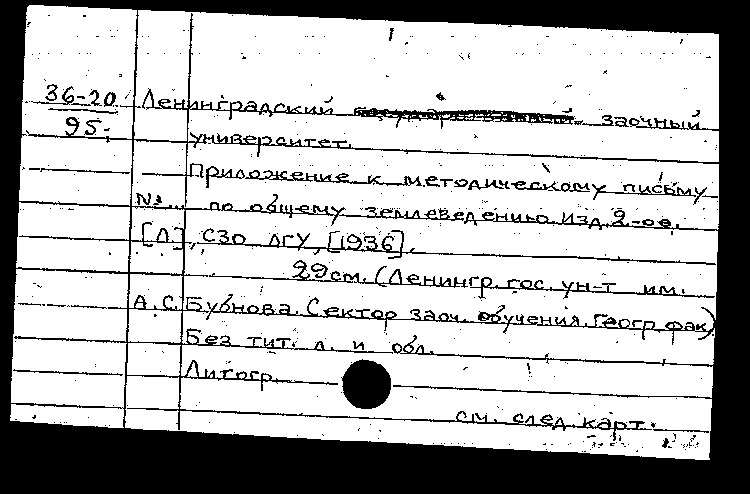 36-20 Ленинградский государственный заочный
95; университет.
Приложение к методическому письму
№... по общему землеведению. Изд. 2-ое.
[Л], СЗО ЛГУ, [1936].
29 см. (Ленингр. гос. ун-т им.
А.С. Бубнова. Сектор заоч. обучения. Геогр. фак)
Без тит. л. и обл.
Литогр.
см. след. карт.